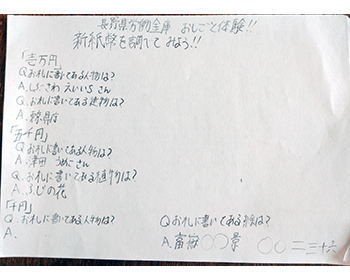 長野県労働金庫 おしごと体験!!
新紙幣を調べてみよう!!
「壱万円」
Qお札に書いてある人物は?
A.しぶさわ えいいち さん
Q.お札に書いてある建物は?
A.
「五千円」
Qお札に書いてある人物は?
A.津田 うめこさん
Q.お札に書いてある植物は?
A.ふじの花
「千円」
Q.お札に書いてある人物は?
A.
Qお札に書いてある絵は?
A.富嶽〇〇景 〇〇二三十六